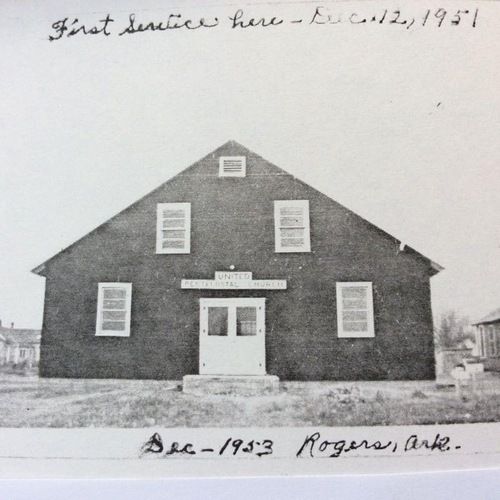 First Service here - Dec. 12, 1951
UNITED
PENTECOSTAL CHURCH
Dec - 1953 Rogers, Ark.